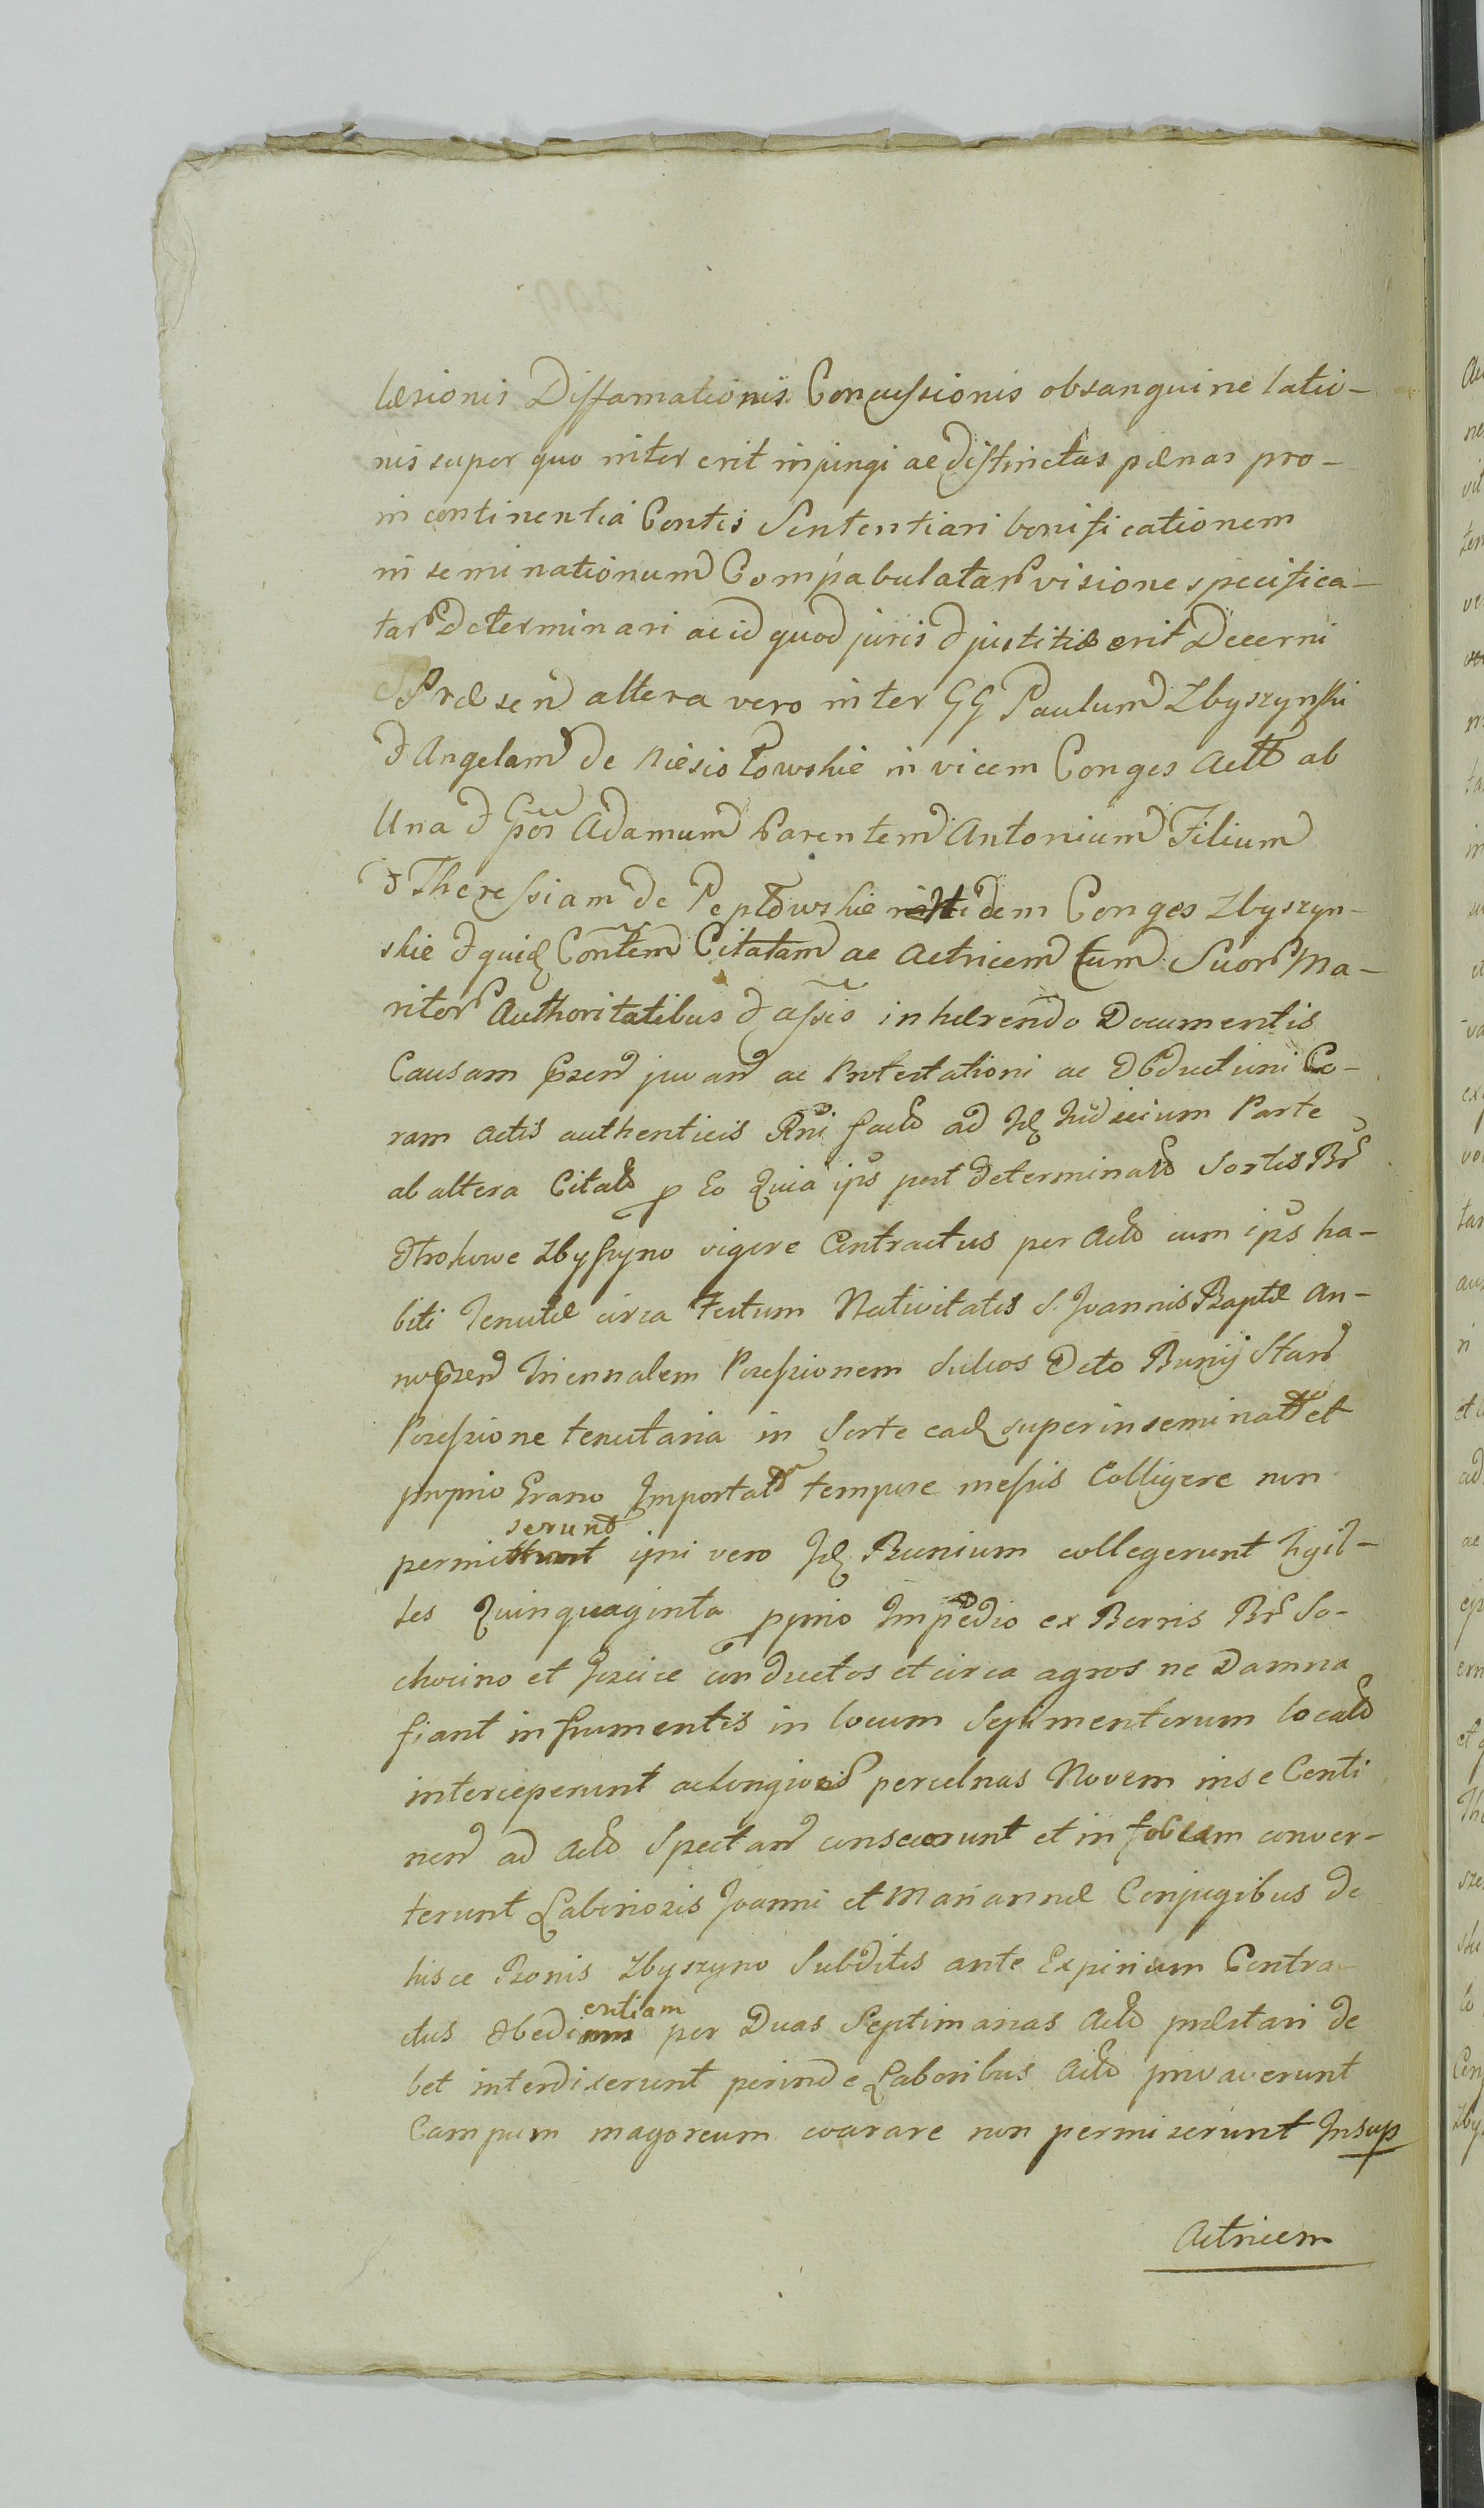 læsionis Diffamationis Concussionis obsanguine latio-
nis super quo inter erit injungi ac distinctas pœnas pro-
in continentia Contis Sententiari bonificationem
in seminationum Compabulatar visione specifica-
tar Determinari ac id quod juris & justitiæ erit Decerni
Præsen altera vero inter GG Paulum Zbyszynski
& Angelam de Niesiołowskie in vicem Conges Actt ab
Una & Adamum Parentem Antonium Filium
& Theressiam de Peptowskie itidem Conges Zbyszyn-
skie & quid Contem Citatam ac Actricem cum Suor Ma-
ritor Authoritatibus & assis in hærendo Documentis
Causam pzen juvan ac Protestationi ac Obductioni Co-
ram actis authenticis Rni fact ad Jud Judicium Parte
ab altera Citato p Eo Quia ips post determinato Sortis Br
Strokowe Zbyszyno vigore Contractus per Act cum ips ha-
biti Tenutæ circa Festum Nativitatis S. Joannis Baptæ an-
no pzen Triennalem Possessionem Sulcos Octo Runij Stan
Possessione tenutaria in Sorte ead super inseminatt et
proprio Grano Importato tempore messis Colligere non
permiserunt ipsi vero Runium collegerunt
tes Quinquaginta pprio Impedio ex Borris Br So-
chocino et conductos et circa agros ne Damna
fiant in frumentis in locum Sepimentorum locato
interceperunt ac longiores per ulnas Novem in se Conti
nen ad Act Spectan consecrunt et in focum conver-
terunt Laboriosis Joanni et Mariannæ Conjugibus de
hisce Bonis Zbyszyno Subditis ante Expirium Contra-
ctus Obedientiam per Duas Septimanas Act præstari de
bet interdixerunt perinde Laboribus Act privaverunt
Campum magoreum coarare non permiserunt Insup
Actricem